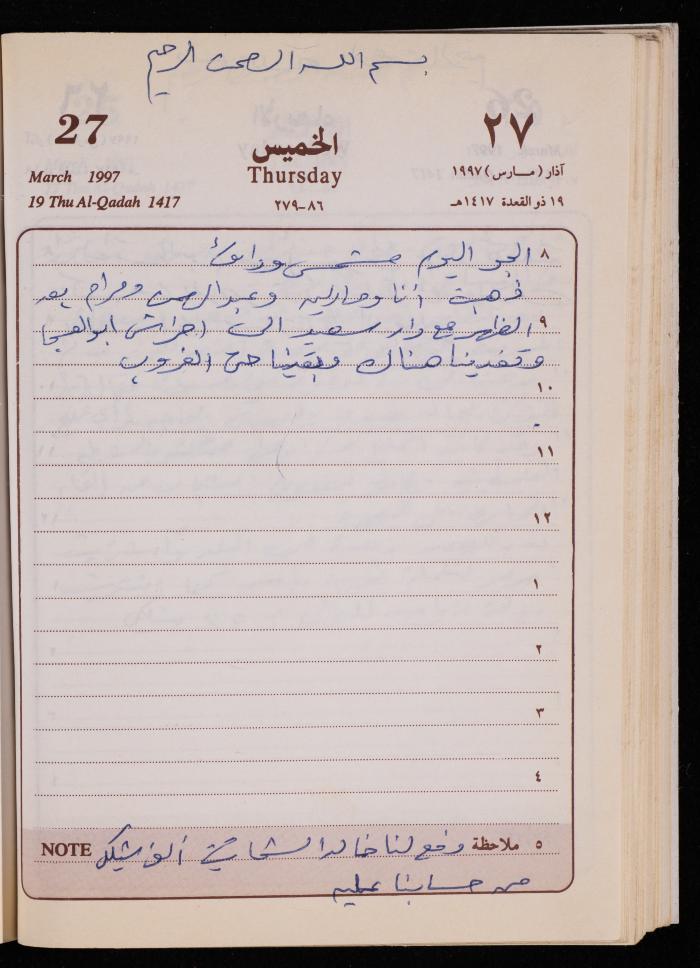 بسم الله الرحمن الرحيم
27 الخميس ٢٧
March 1997 Thursday آذار (مارس) ١٩٩٧
19 Thu Al-Qadah 1417 ٢٧٩-٨٦ ١٩ ذو القعدة ١٤١٧هـ
٨ الجو اليوم مشمس ودافئ
ذهبت أنا وماريه وعبدالرحمن ومرام بعد
٩ الظهر مع دار سعيد الى احراش ابو العيجا
وتغدينا هناك وبقينا حتى الغروب
١٠
١١
١٢
١
٢
٣
٤
٥ ملاحظة دفع لنا خالد الشحاتيت ألف شيكل NOTE
من حسابنا عليه